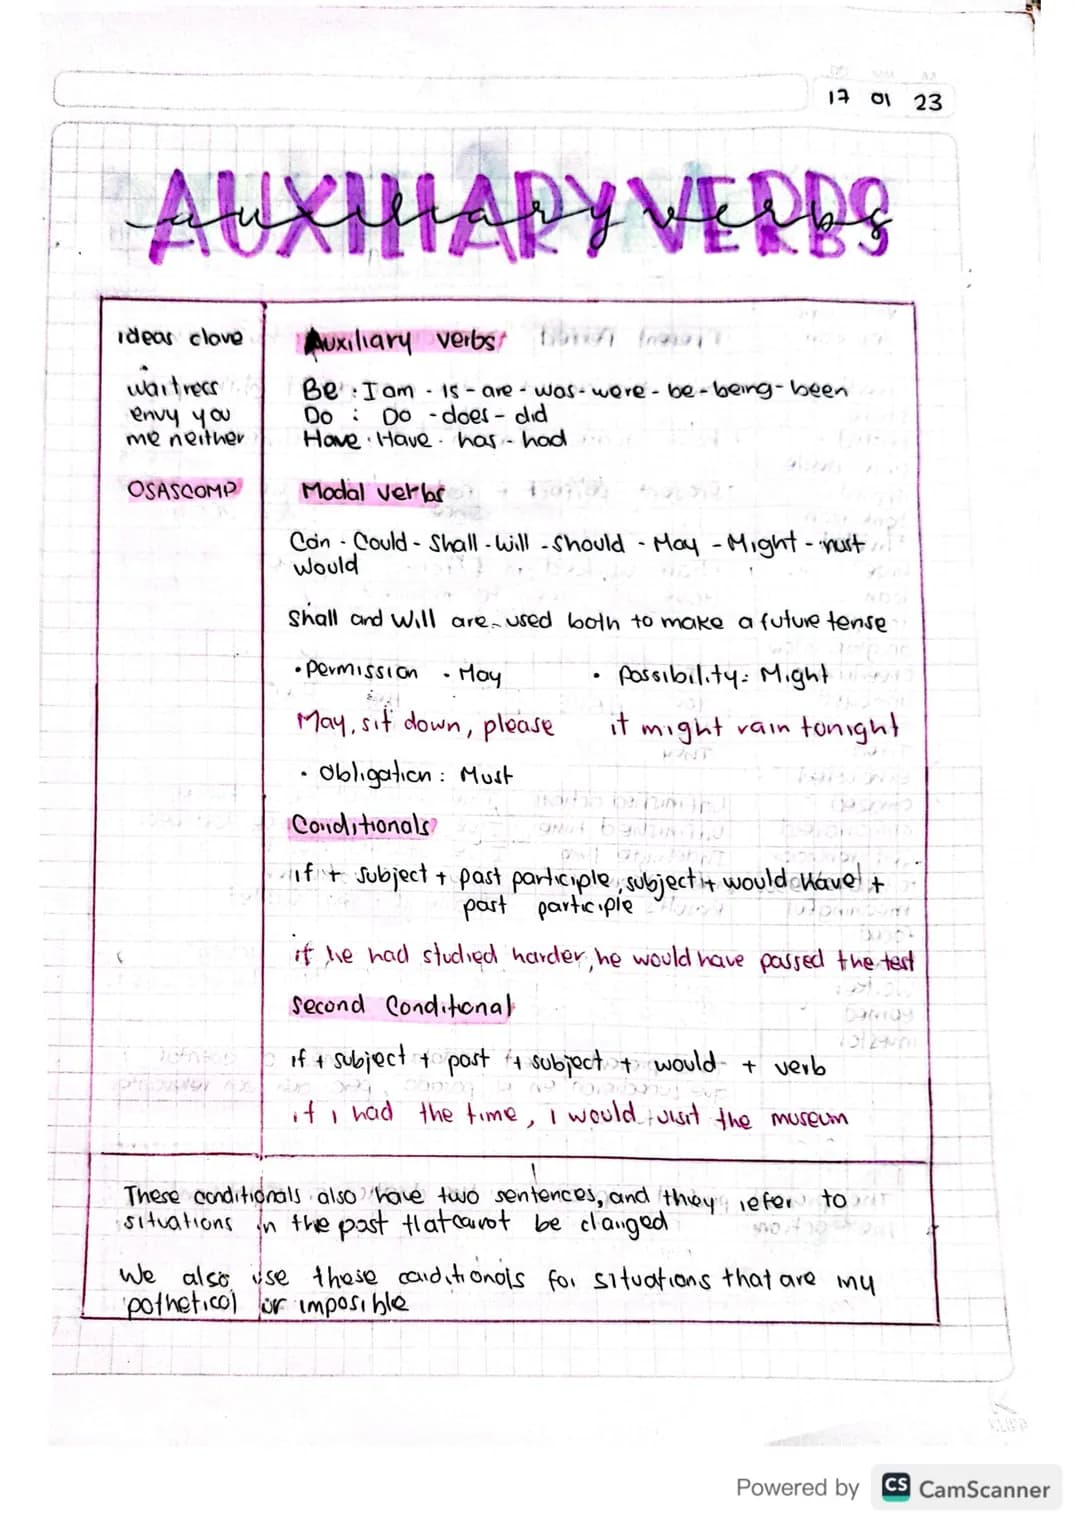 17 01 23
AUXILIARY VERBS
auxiliary verbs
ideas clave
waitress
envy you
me neither
OSASCOMP
Auxiliary verbs
Be: I am - is - are - was - were - be - being - been
Do: Do - does - did
Have: Have - has - had
Modal verbs
Can - Could - Shall - Will - Should - May - Might - must
would
Shall and Will are used both to make a future tense
• Permission - May • Possibility: Might
May, sit down, please it might rain tonight
• Obligation: Must
Conditionals
if + subject + past participle, subject + would Have +
past participle
if he had studied harder, he would have passed the test
Second Conditional
if + subject + past + subject + would + verb
if i had the time, i would visit the museum
These conditionals also have two sentences, and they refer to
situations in the past that cannot be changed
We also use these conditionals for situations that are my
pothetical or imposible
Powered by CS CamScanner